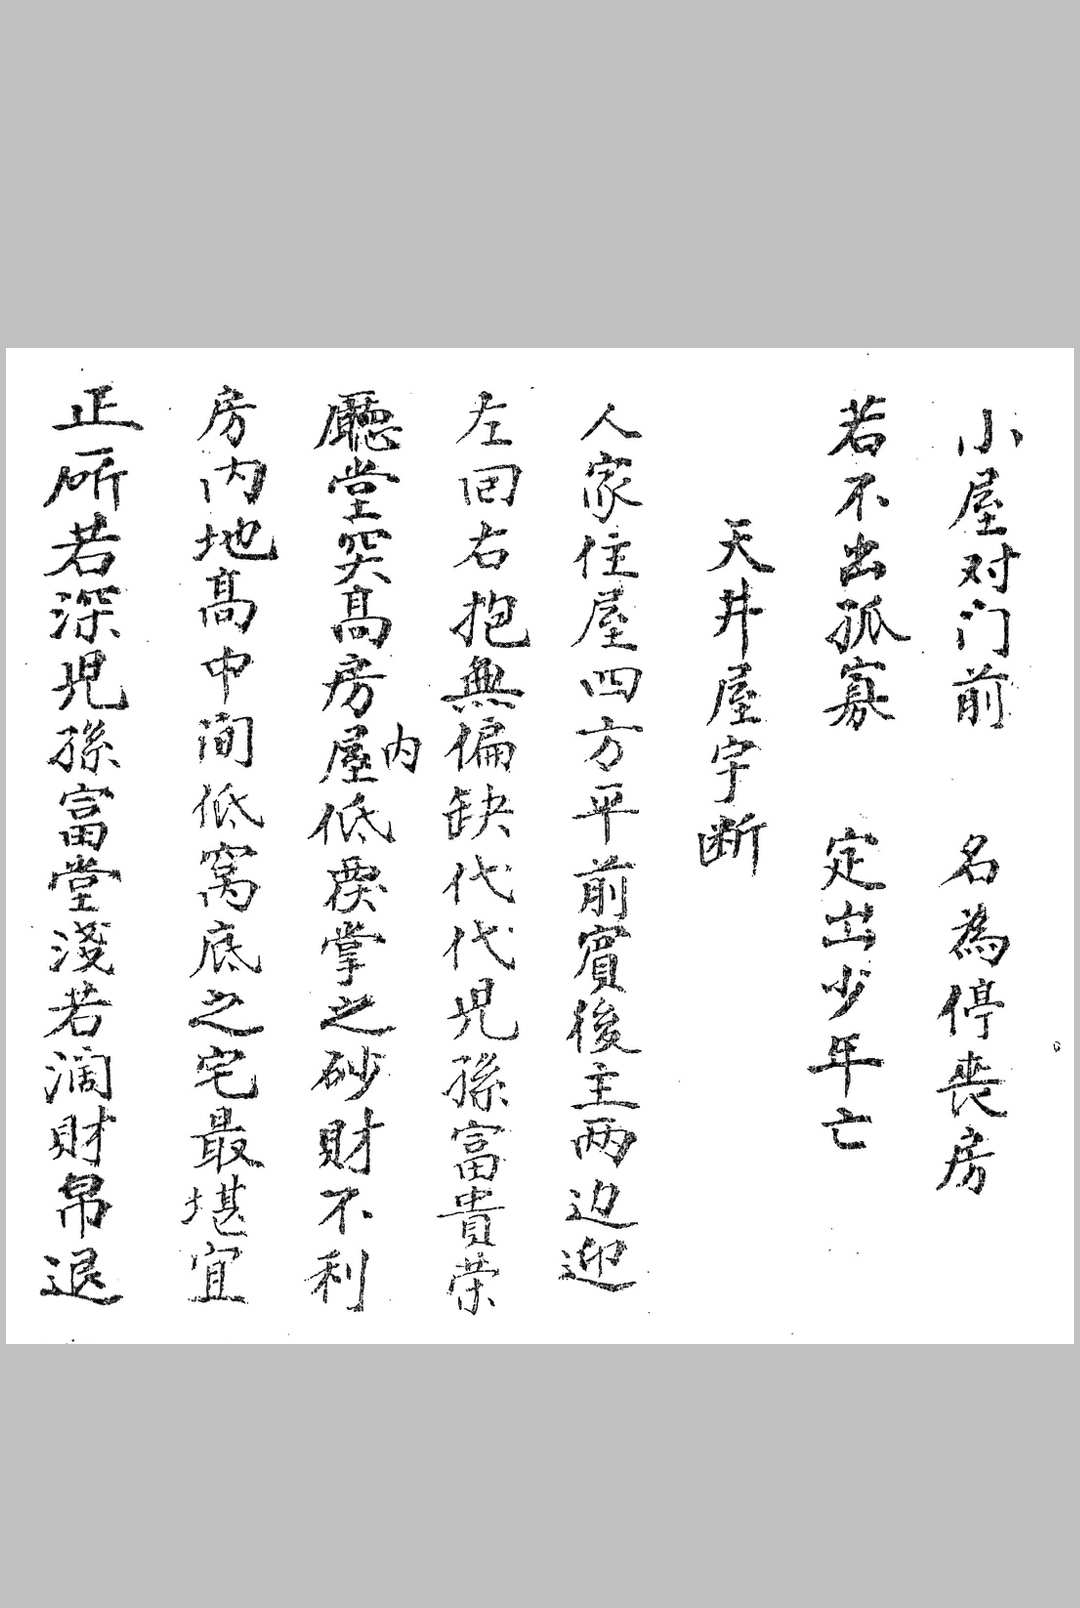 小屋对门前 名為停丧房
若不出孤寡 定出少年亡
天井屋宇断
人家住屋四方平前賓後主两边迎
左回右抱無偏缺代代児孫富貴荣
廳堂突高房屋内低覆掌之砂財不利
房内地高中间低窩底之宅最堪宜
正所若深児孫富堂淺若濶財帛退